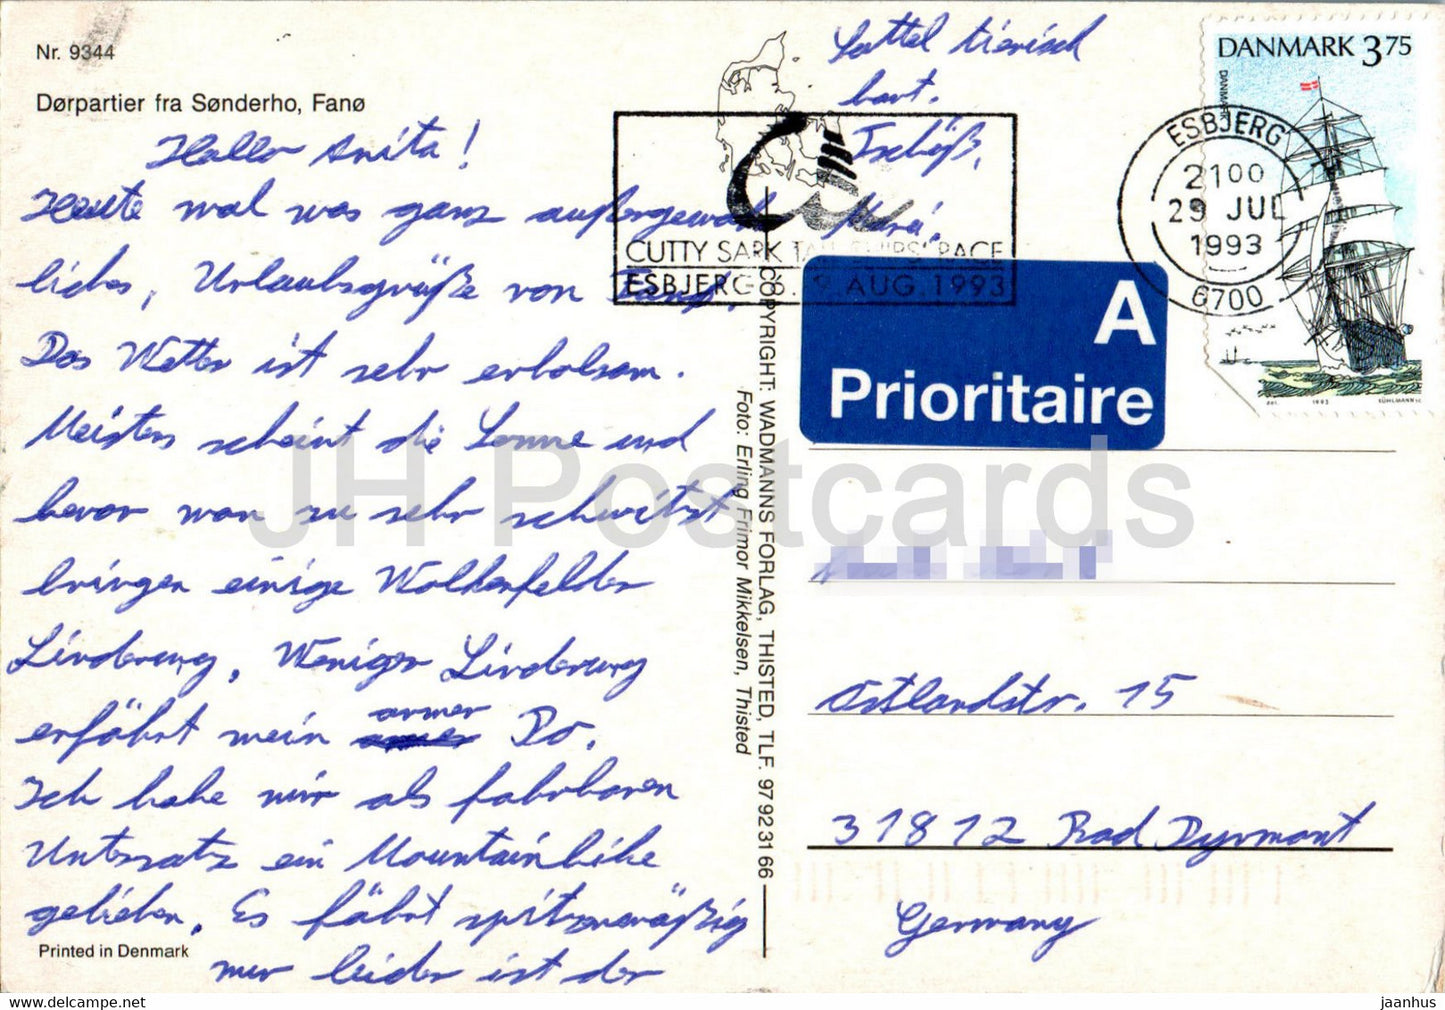 Nr. 9344
Dørpartier fra Sønderho, Fanø
Hallo Anita!
Heute mal was ganz außergewöhn
liches, Urlaubsgrüße von Fanø.
Das Wetter ist sehr erholsam.
Meistens scheint die Sonne und
bevor man zu sehr schwitzt
bringen einige Wolkenfelder
Linderung. Weniger Linderung
erfährt mein armer Po.
Ich habe mir als fahrbaren
Untersatz ein Mountainbike
geliehen. Es fährt spitzenmäßig
nur leider ist der
Printed in Denmark
Sattel tierisch
hart.
Tschöß,
CUTTY SARK TALL SHIPS' RACE
ESBJERG 8. 9. AUG. 1993
ESBJERG
2100
29 JUL
1993
6700
DANMARK 3.75
DANMARK
1993
KÜHLMANN SC.
A
Prioritaire
COPYRIGHT: WADMANNS FORLAG, THISTED, TLF. 97 92 31 66
Foto: Erling Frimor Mikkelsen, Thisted
Ostlandstr. 15
31812 Bad Pyrmont
Germany
JH Postcards
jaanhus